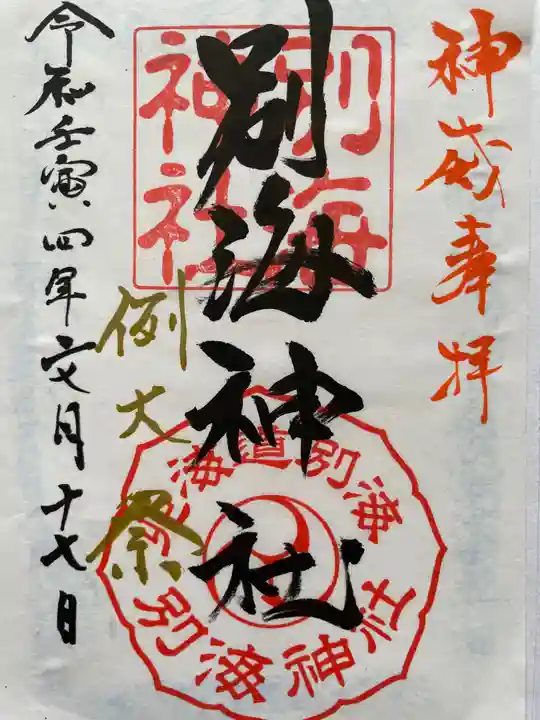 神威奉拝
別海神社
別海神社
例大祭
令和壬寅四年文月十七日
北海道別海
別海神社